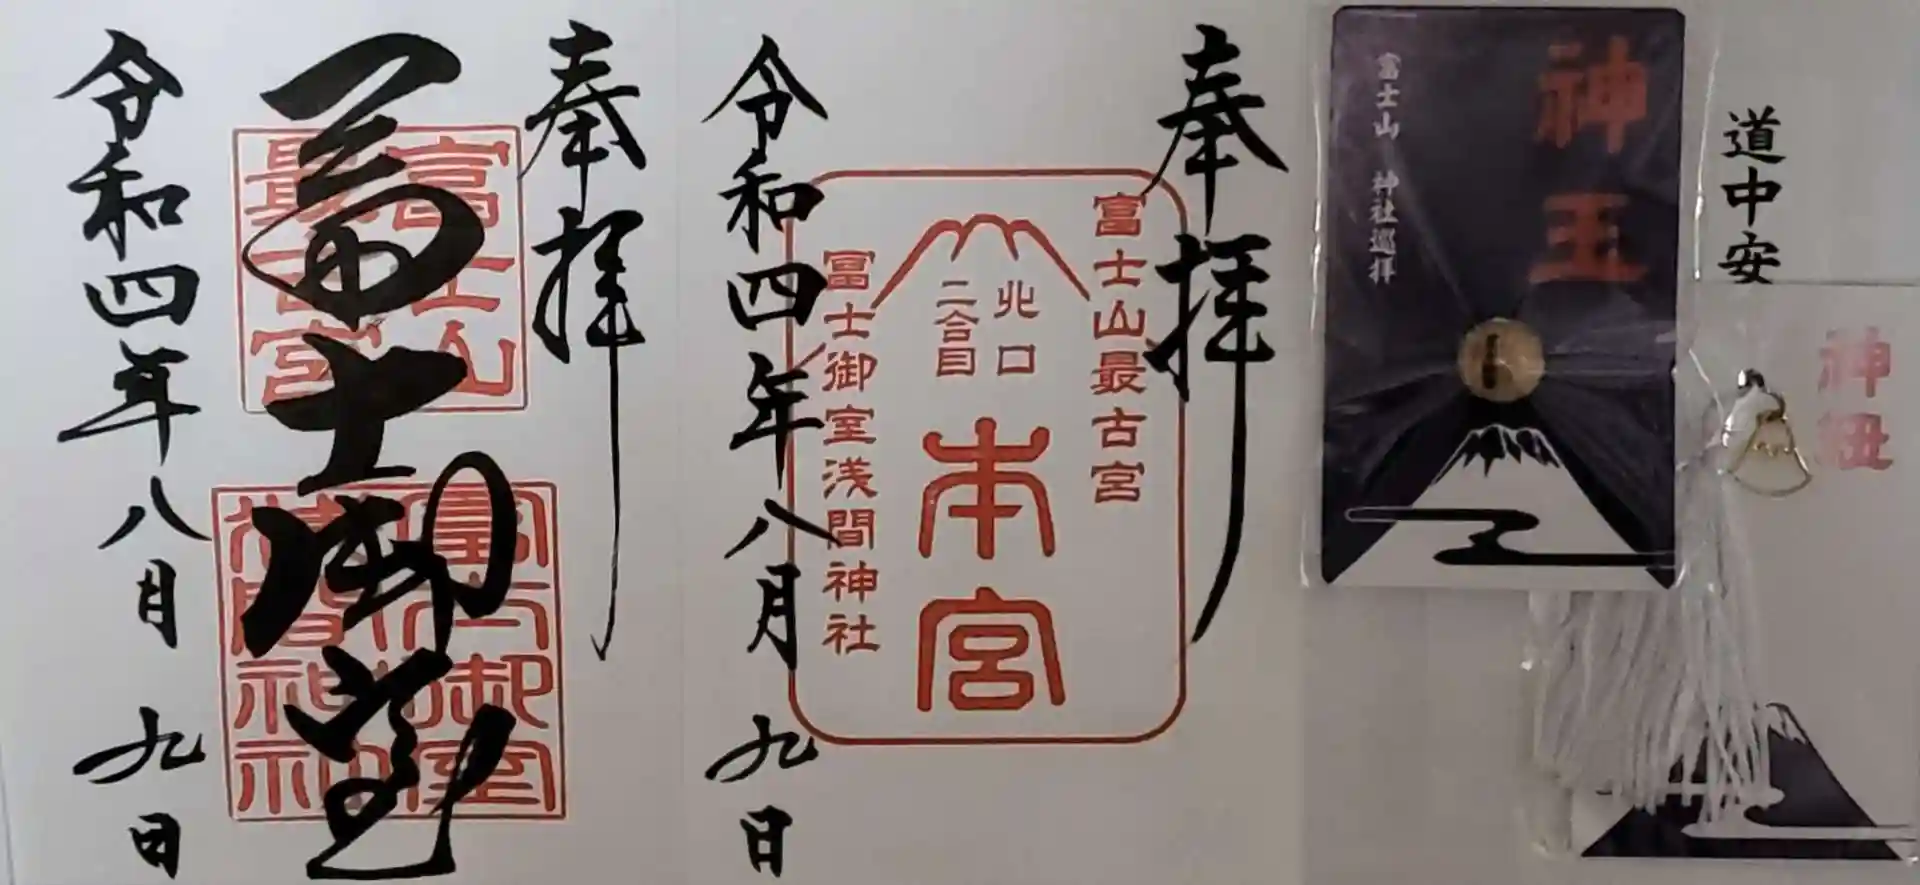 奉拝
富士山
最古宮
冨士御室
浅間神社
冨士御室
令和四年八月九日
奉拝
富士山最古宮
北口
二合目
本宮
冨士御室浅間神社
令和四年八月九日
神玉
富士山 神社巡拝
道中安
神紐